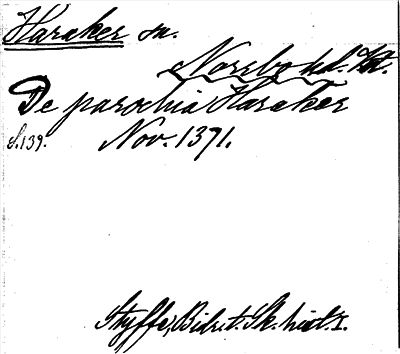 Haraker sn.
Norrbo hd. Vstm.
De parochia Haraker
S. 139. Nov. 1371.
Styffe, Bidr. t. Sk. hist. I.